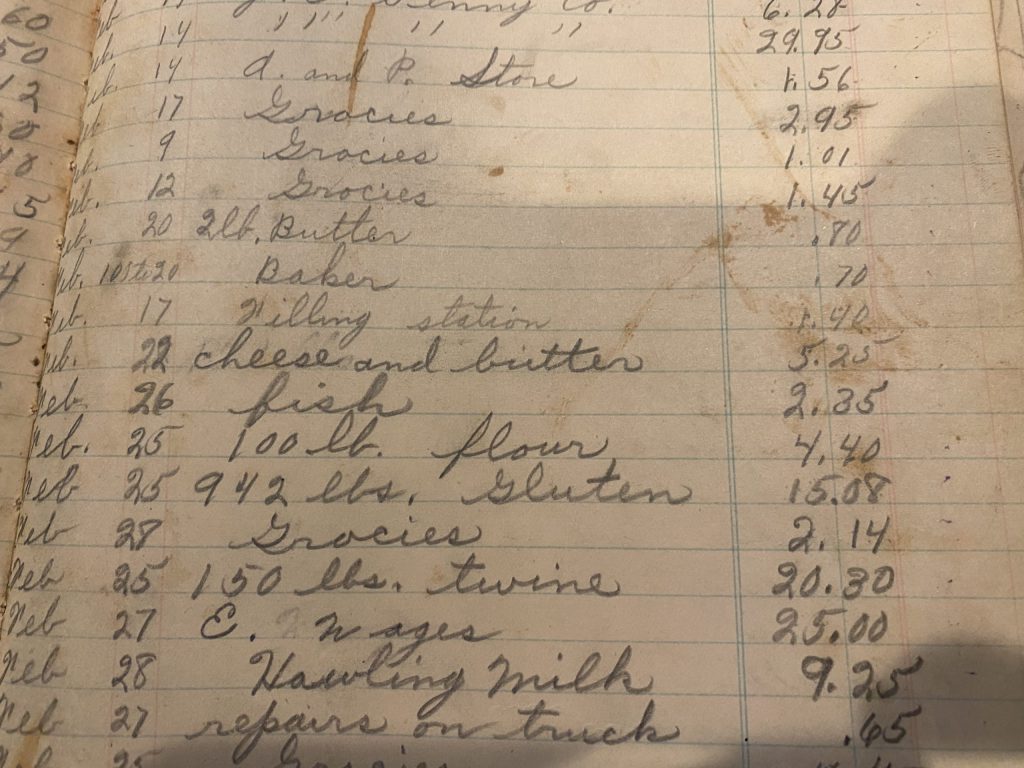 Penny Co. 6.28
60 14 " " " " 29.95
50 14 A. and P. Store 1.56
12 17 Grocies 2.95
9 Grocies 1.01
12 Grocies 1.45
5 eb. 20 2lb. Butter .70
9 eb. 10 to 20 Baker .70
4 eb. 17 Filling station 1.40
eb. 22 cheese and butter 5.25
Feb 26 fish 2.35
Feb. 25 100 lb. flour 4.40
Feb 25 942 lbs. Gluten 15.08
Feb 28 Grocies 2.14
Feb 25 150 lbs. twine 20.30
Feb 27 E. Wages 25.00
Feb 28 Hawling Milk 9.25
Feb 27 repairs on truck .65
25 Grocies